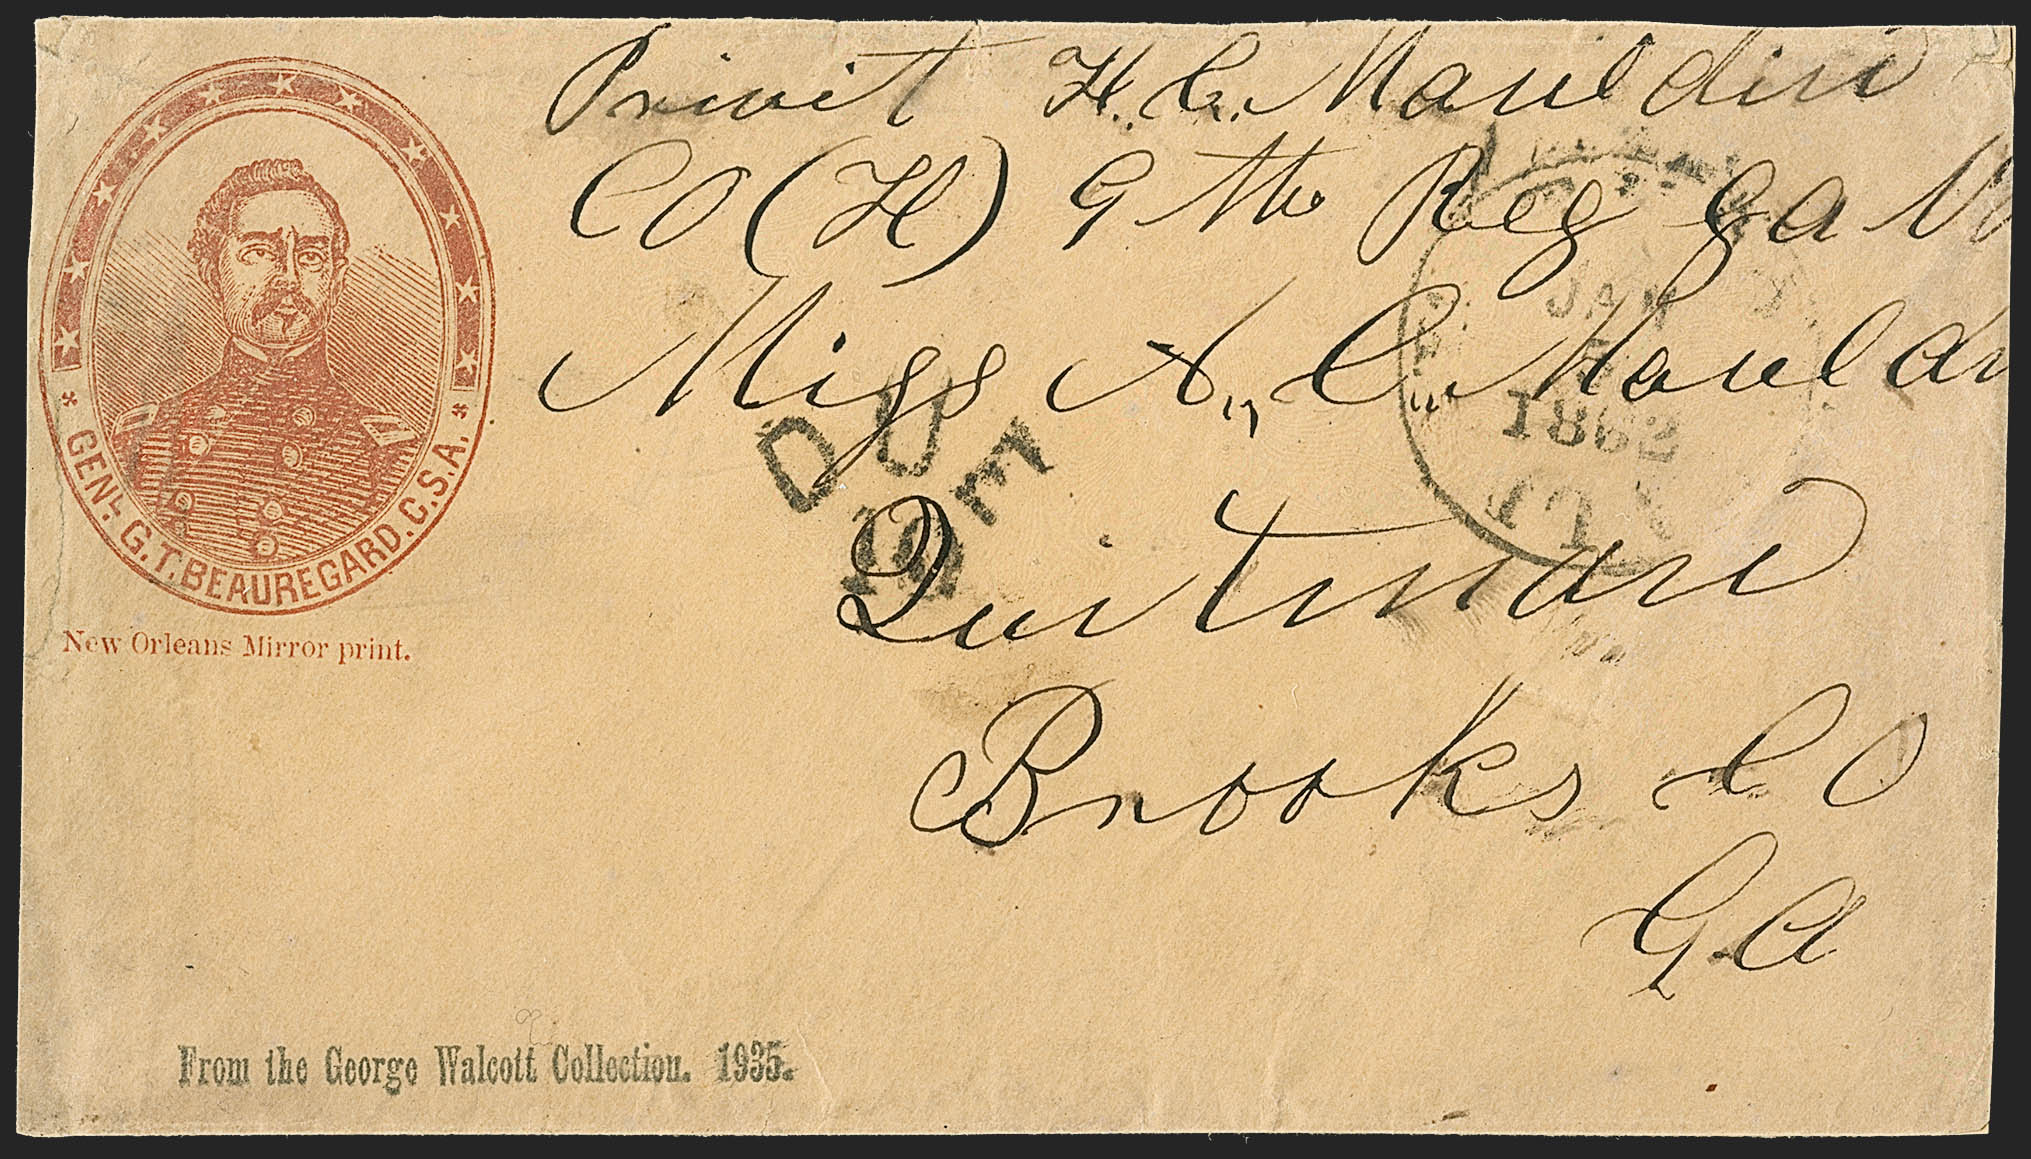 Privit H. C. Mauldin
Co (H) 9 th Reg Ga V
Miss A,, C,, Mauldi
Quitman
Brooks Co
Ga
DUE
10
JAN
1862
GENL G.T. BEAUREGARD. C.S.A.
New Orleans Mirror print.
From the George Walcott Collection. 1935.